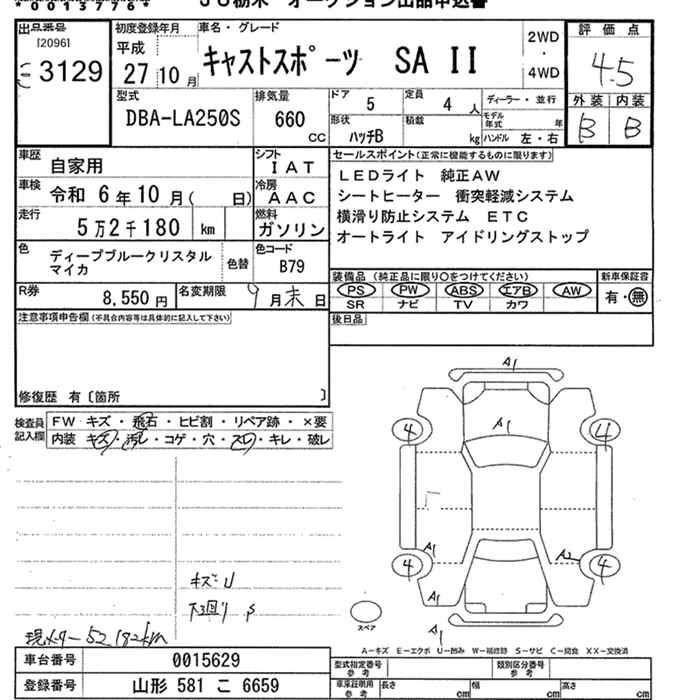 *00137764*
JU栃木 オークション出品申込書
出品番号
[2096]
3129
初度登録年月
平成
27 10月
車名・グレード
キャストスポーツ SA II
2WD
・
4WD
評価点
4.5
外装 内装
B B
型式
DBA-LA250S
排気量
660
CC
ドア
5
定員
4人
ディーラー・並行
形状
ハッチB
積載
kg
モデル年式 年
ハンドル 左・右
車歴
自家用
シフト
IAT
車検
令和 6年10月( 日)
冷房
AAC
走行
5万2千180 km
燃料
ガソリン
色
ディープブルークリスタル
マイカ
色替
色コード
B79
R券
8,550円
名変期限
9月末日
セールスポイント(正常に機能するものに限ります)
LEDライト 純正AW
シートヒーター 衝突軽減システム
横滑り防止システム ETC
オートライト アイドリングストップ
装備品(純正品に限り○をつけてください)
PS PW ABS エアB AW
SR ナビ TV カワ
新車保証書
有・無
注意事項申告欄(不具合内容等は具体的に記入して下さい)
後日品
修復歴 有〔箇所 〕
検査員
記入欄
FW キズ・飛石・ヒビ割・リペア跡・×要
内装 キズ・汚レ・コゲ・穴・スレ・キレ・破レ
A1
A1
4 4
A1 A2
4 4
A1
A1
スペア
キズU
下廻りS
現メーター52,182km
A-キズ E-エクボ U-凹み W-補修跡 S-サビ C-腐食 XX-交換済
車台番号
0015629
登録番号
山形 581 こ 6659
型式指定番号
参考
類別区分番号
参考
車庫証明用
参考
長さ cm
幅 cm
高さ cm